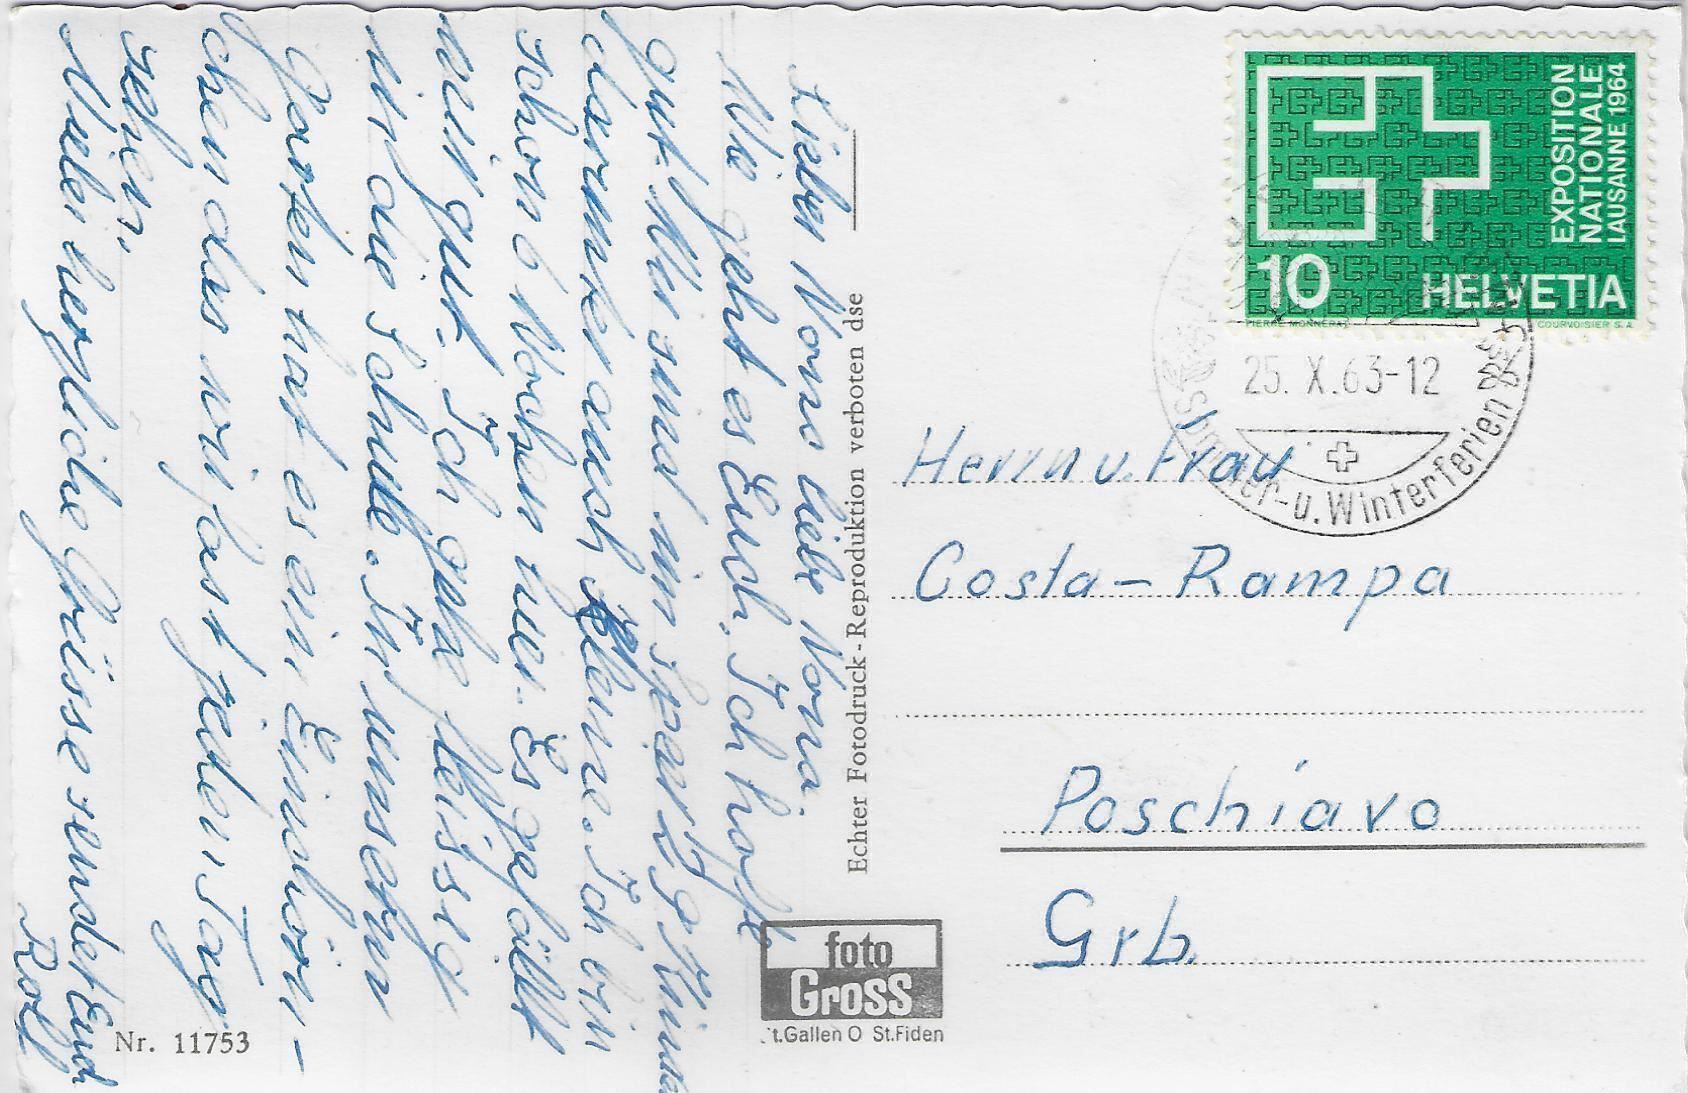 Lieber Nono liebe Nona.
Wie geht es Euch, Ich hoffe
gut. Wir sind im Ganzen 29 Kinder
darunter auch kleine. Ich bin
schon 6 Wochen hier. Es gefällt
mir gut. Ich gehe fleissig
in die Schule. In unserm
Garten hat es ein Eichhörn-
chen das wir fast jeden Tag
sehen.
Viele herzliche Grüsse sendet Euch
Rolf
Nr. 11753
Echter Fotodruck - Reproduktion verboten dse
foto
Gross
t.Gallen O St.Fiden
EXPOSITION
NATIONALE
LAUSANNE 1964
10 HELVETIA
PIERRE MONNERAT COURVOISIER S.A.
25. X. 63-12
Sommer-u. Winterferien
Herrn u. Frau
Costa - Rampa
Poschiavo
Grb.